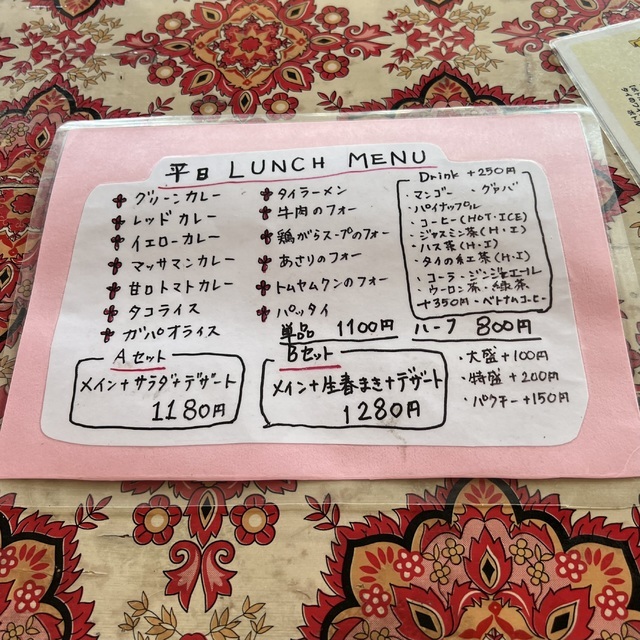 平日 LUNCH MENU
グリーンカレー
レッドカレー
イエローカレー
マッサマンカレー
甘口トマトカレー
タコライス
ガパオライス
タイラーメン
牛肉のフォー
鶏がらスープのフォー
あさりのフォー
トムヤムクンのフォー
パッタイ
単品 1100円 ハーフ 800円
Drink +250円
・マンゴー ・グァバ
・パイナップル
・コーヒー(HOT・ICE)
・ジャスミン茶(H・I)
・ハス茶(H・I)
・タイの紅茶(H・I)
・コーラ・ジンジャエール
・ウーロン茶・緑茶
+350円・ベトナムコーヒー
Aセット
メイン+サラダ+デザート
1180円
Bセット
メイン+生春まき+デザート
1280円
・大盛+100円
・特盛+200円
・パクチー+150円